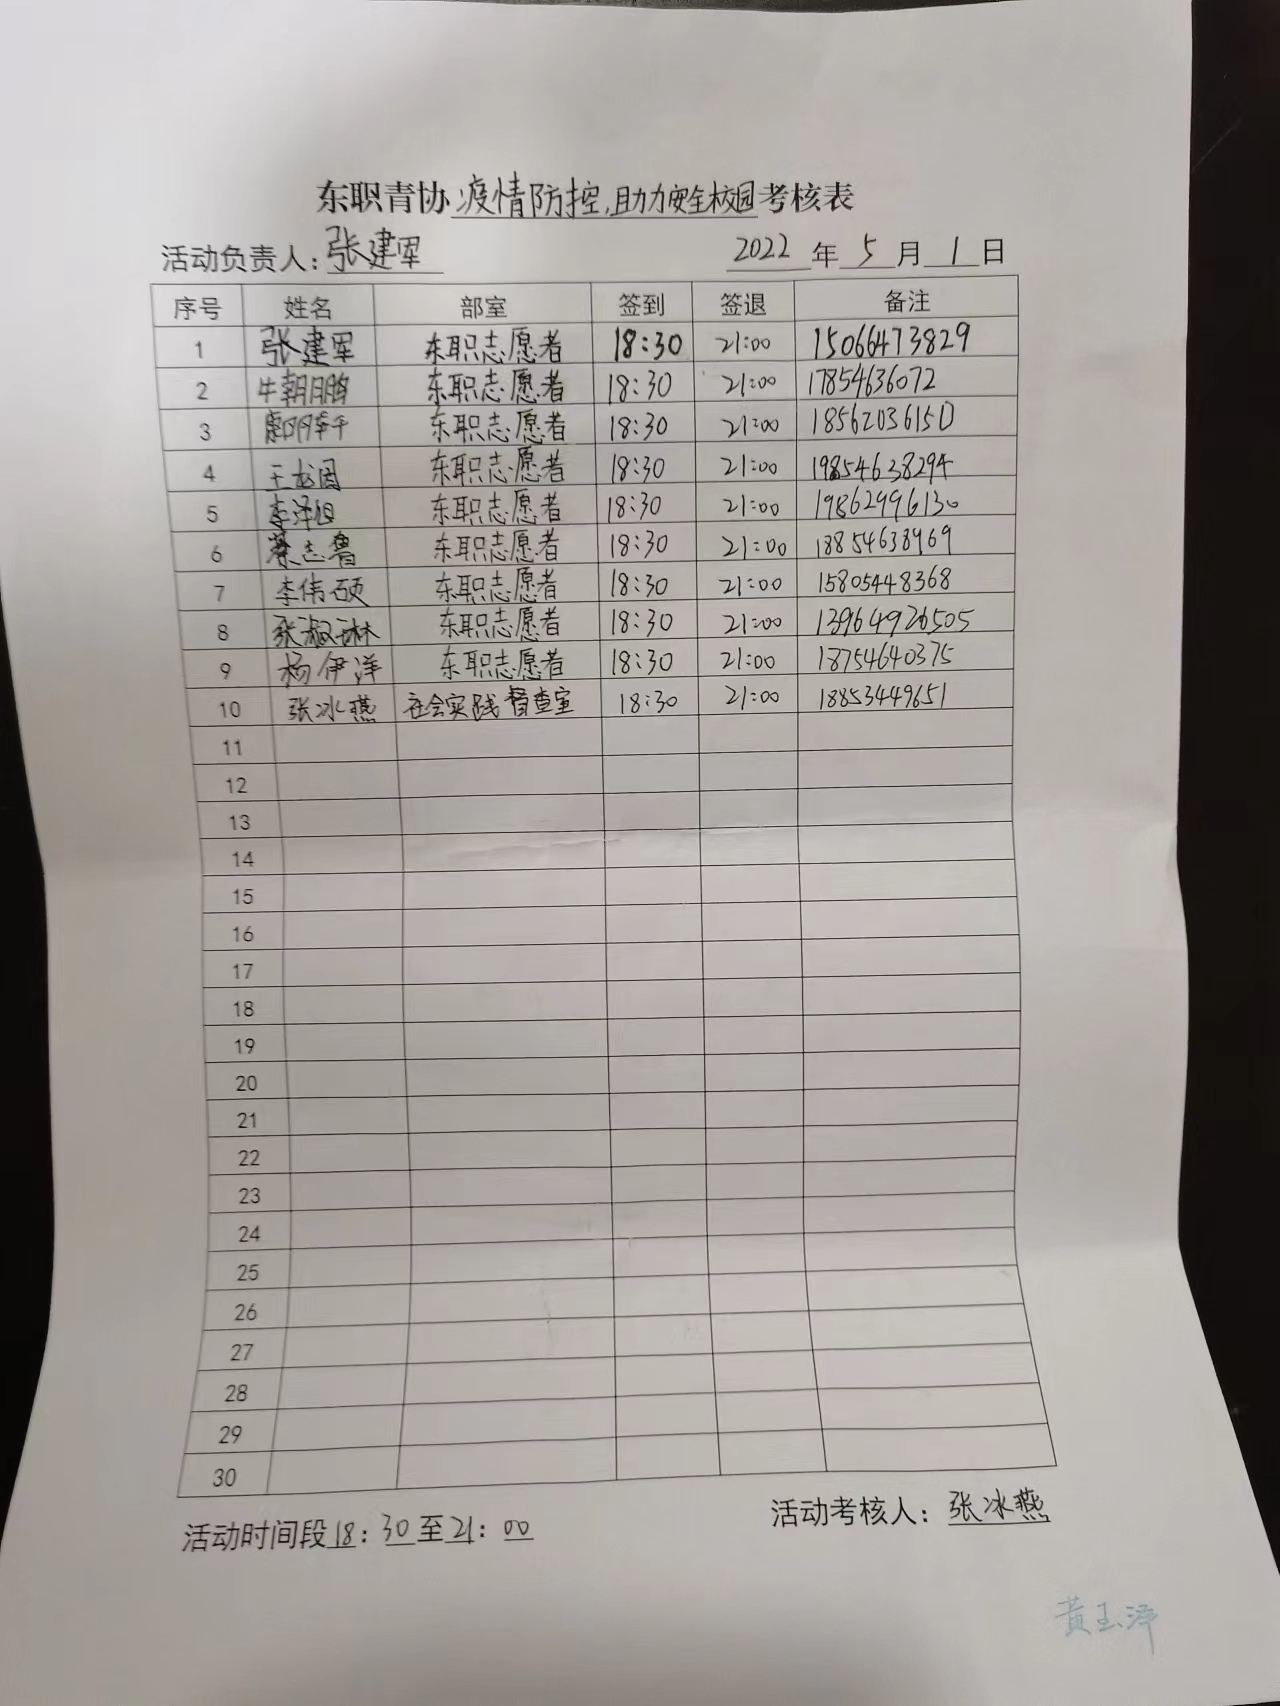 东职青协疫情防控,助力安全校园考核表
活动负责人:张建军 2022年5月1日
序号 姓名 部室 签到 签退 备注
1 张建军 东职志愿者 18:30 21:00 15066473829
2 牛朝鹏 东职志愿者 18:30 21:00 17854636072
3 东职志愿者 18:30 21:00 18562036150
4 王龙国 东职志愿者 18:30 21:00 19854638294
5 李泽旭 东职志愿者 18:30 21:00 19862996130
6 蔡志鲁 东职志愿者 18:30 21:00 18854638969
7 李伟硕 东职志愿者 18:30 21:00 15805448368
8 张淑琳 东职志愿者 18:30 21:00 13964926505
9 杨伊洋 东职志愿者 18:30 21:00 18754640375
10 张冰燕 社会实践督查室 18:30 21:00 18853449651
11
12
13
14
15
16
17
18
19
20
21
22
23
24
25
26
27
28
29
30
活动时间段18:30至21:00 活动考核人:张冰燕
黄玉萍